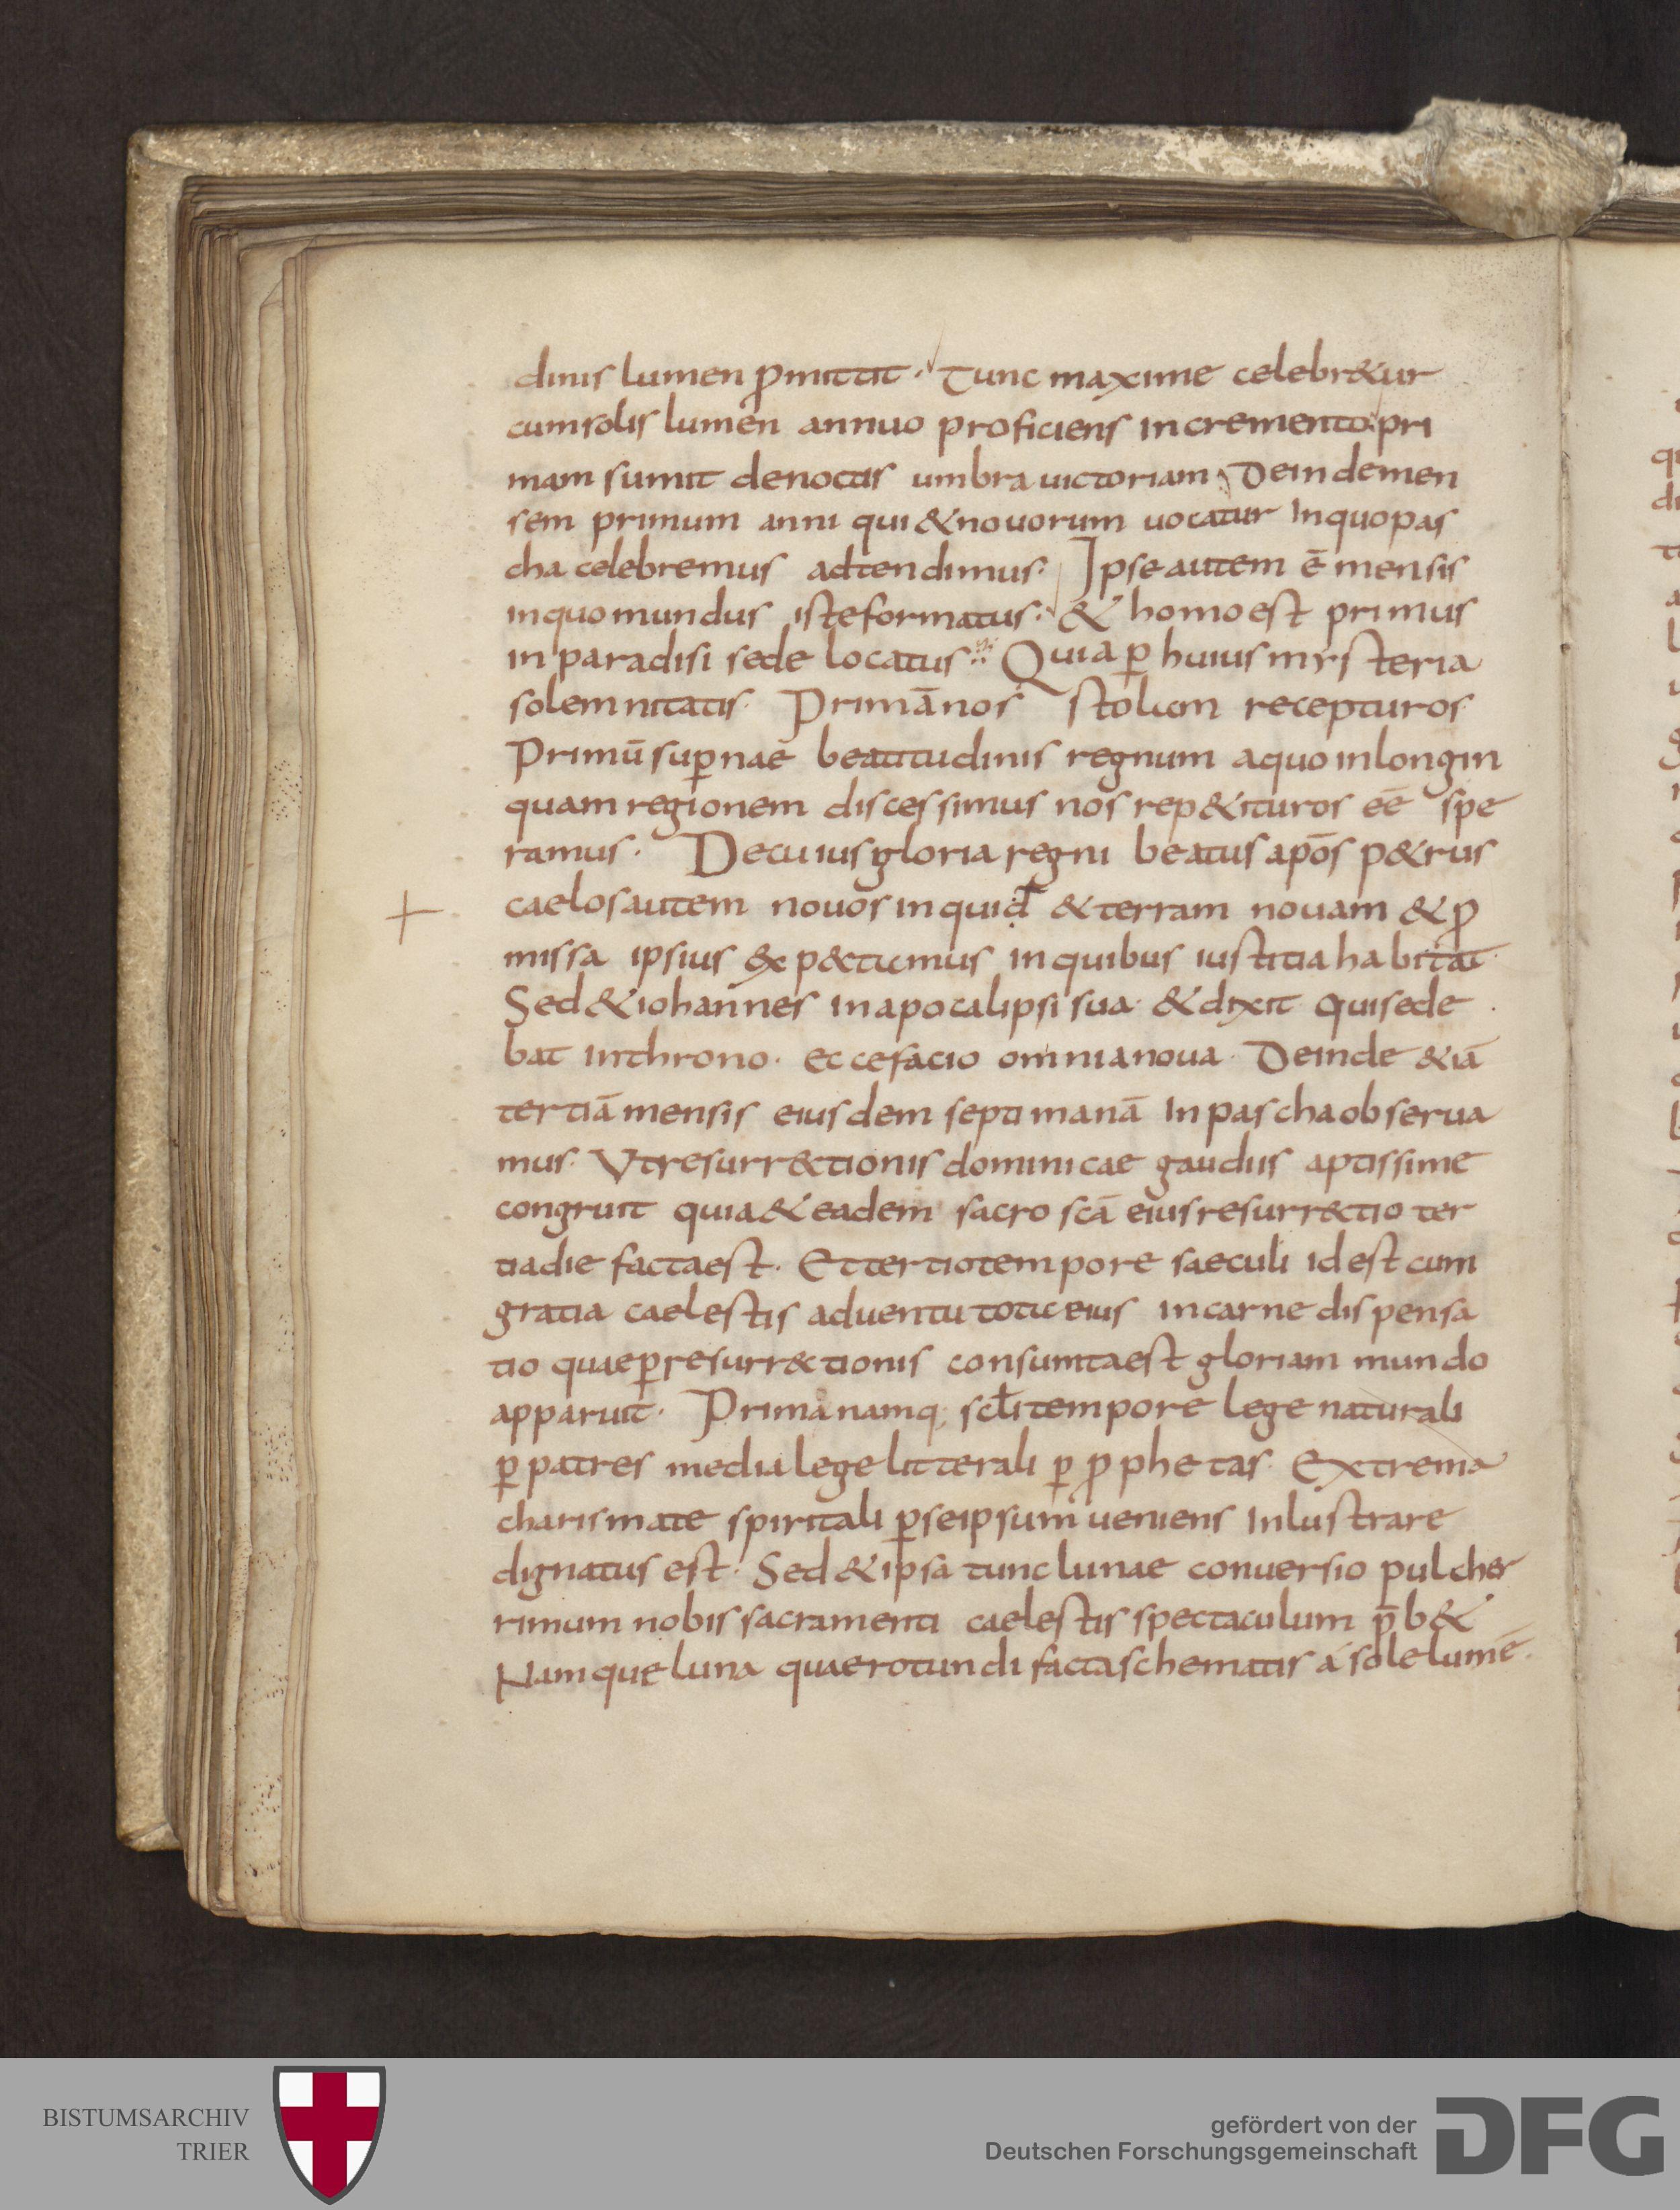 dinis lumen ꝓmittit · Tunc maxime celebr&ur
cum solis lumen annuo proficiens incremento · pri
mam sumit de noctis umbra uictoriam · Dein demen
sem primum anni qui & nouorum uocatur In quo pas
cha celebremus adtendimus · Ipse autem ē mensis
in quo mundus iste formatus · & homo est primus
in paradisi sede locatus · Quia ꝑ huius mysteria
solemnitatis · Primā nos stolam recepturos
Primū suꝑnae beatitudinis regnum a quo in longin
quam regionem discessimus nos rep&ituros eē spe
ramus · De cuius gloria regni beatus apōs p&rus
caelos autem nouos inquid & terram nouam & ꝓ
missa ipsius exp&camus in quibus iustitia habitat
Sed & iohannes in apocalipsi sua · & dixit qui sede
bat in throno · ecce facio omnia noua · Deinde &iā
tertiā mensis eiusdem septimanā In pascha obserua
mus · Vt resurr&tionis dominicae gaudiis aptissime
congruit quia & eadem sacro scā eius resurr&tio ter
tia die facta est · Et tertio tempore saeculi id est cum
gratia caelestis aduentu tota eius in carne dispensa
tio quae ꝑ resurr&tionis consumta est gloriam mundo
apparuit · Prima namq; scl̄i tempore lege naturali
ꝑ patres media lege litterali ꝑ ꝓphetas · Extrema
charismate spiritali ꝑ seipsum ueniens Inlustrare
dignatus est · Sed & ipsa tunc lunae conuersio pulcher
rimum nobis sacramenti caelestis spectaculum p̄b&
Namque luna quae rotundi facta schematis á sole lumē
BISTUMSARCHIV
TRIER
gefördert von der
Deutschen Forschungsgemeinschaft
DFG